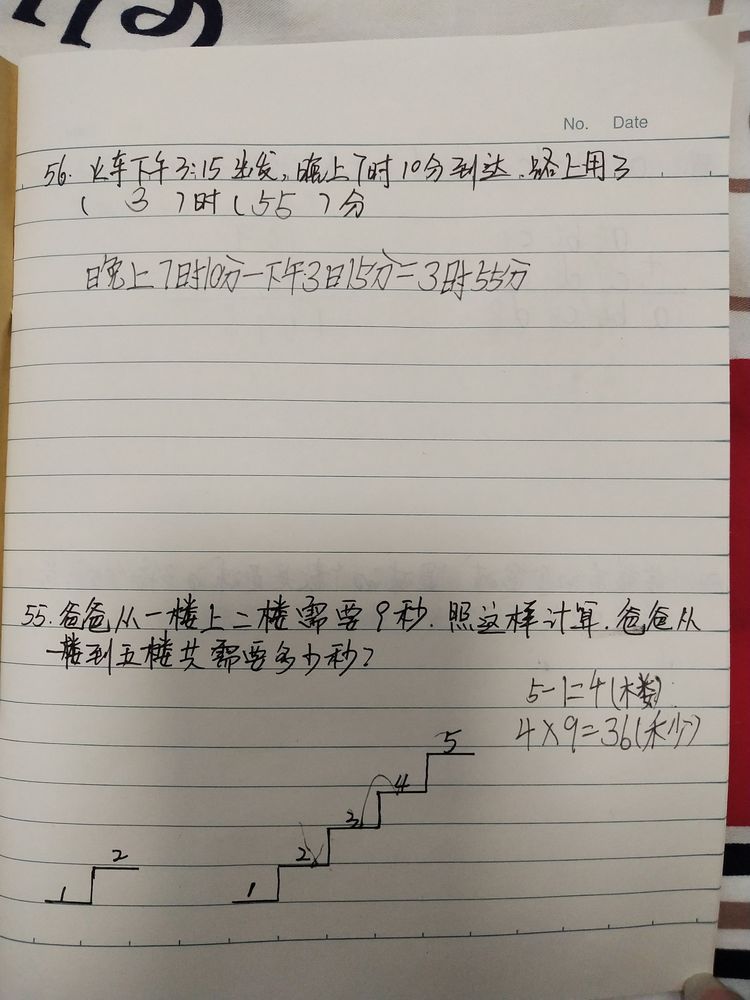 No. Date
56. 火车下午3:15出发,晚上7时10分到达.路上用了
( 3 )时(55)分
晚上7时10分-下午3日15分=3时55分
55.爸爸从一楼上二楼需要9秒.照这样计算.爸爸从
一楼到五楼共需要多少秒?
5-1=4(楼)
4×9=36(秒)
5
4
3
2 2
1 1